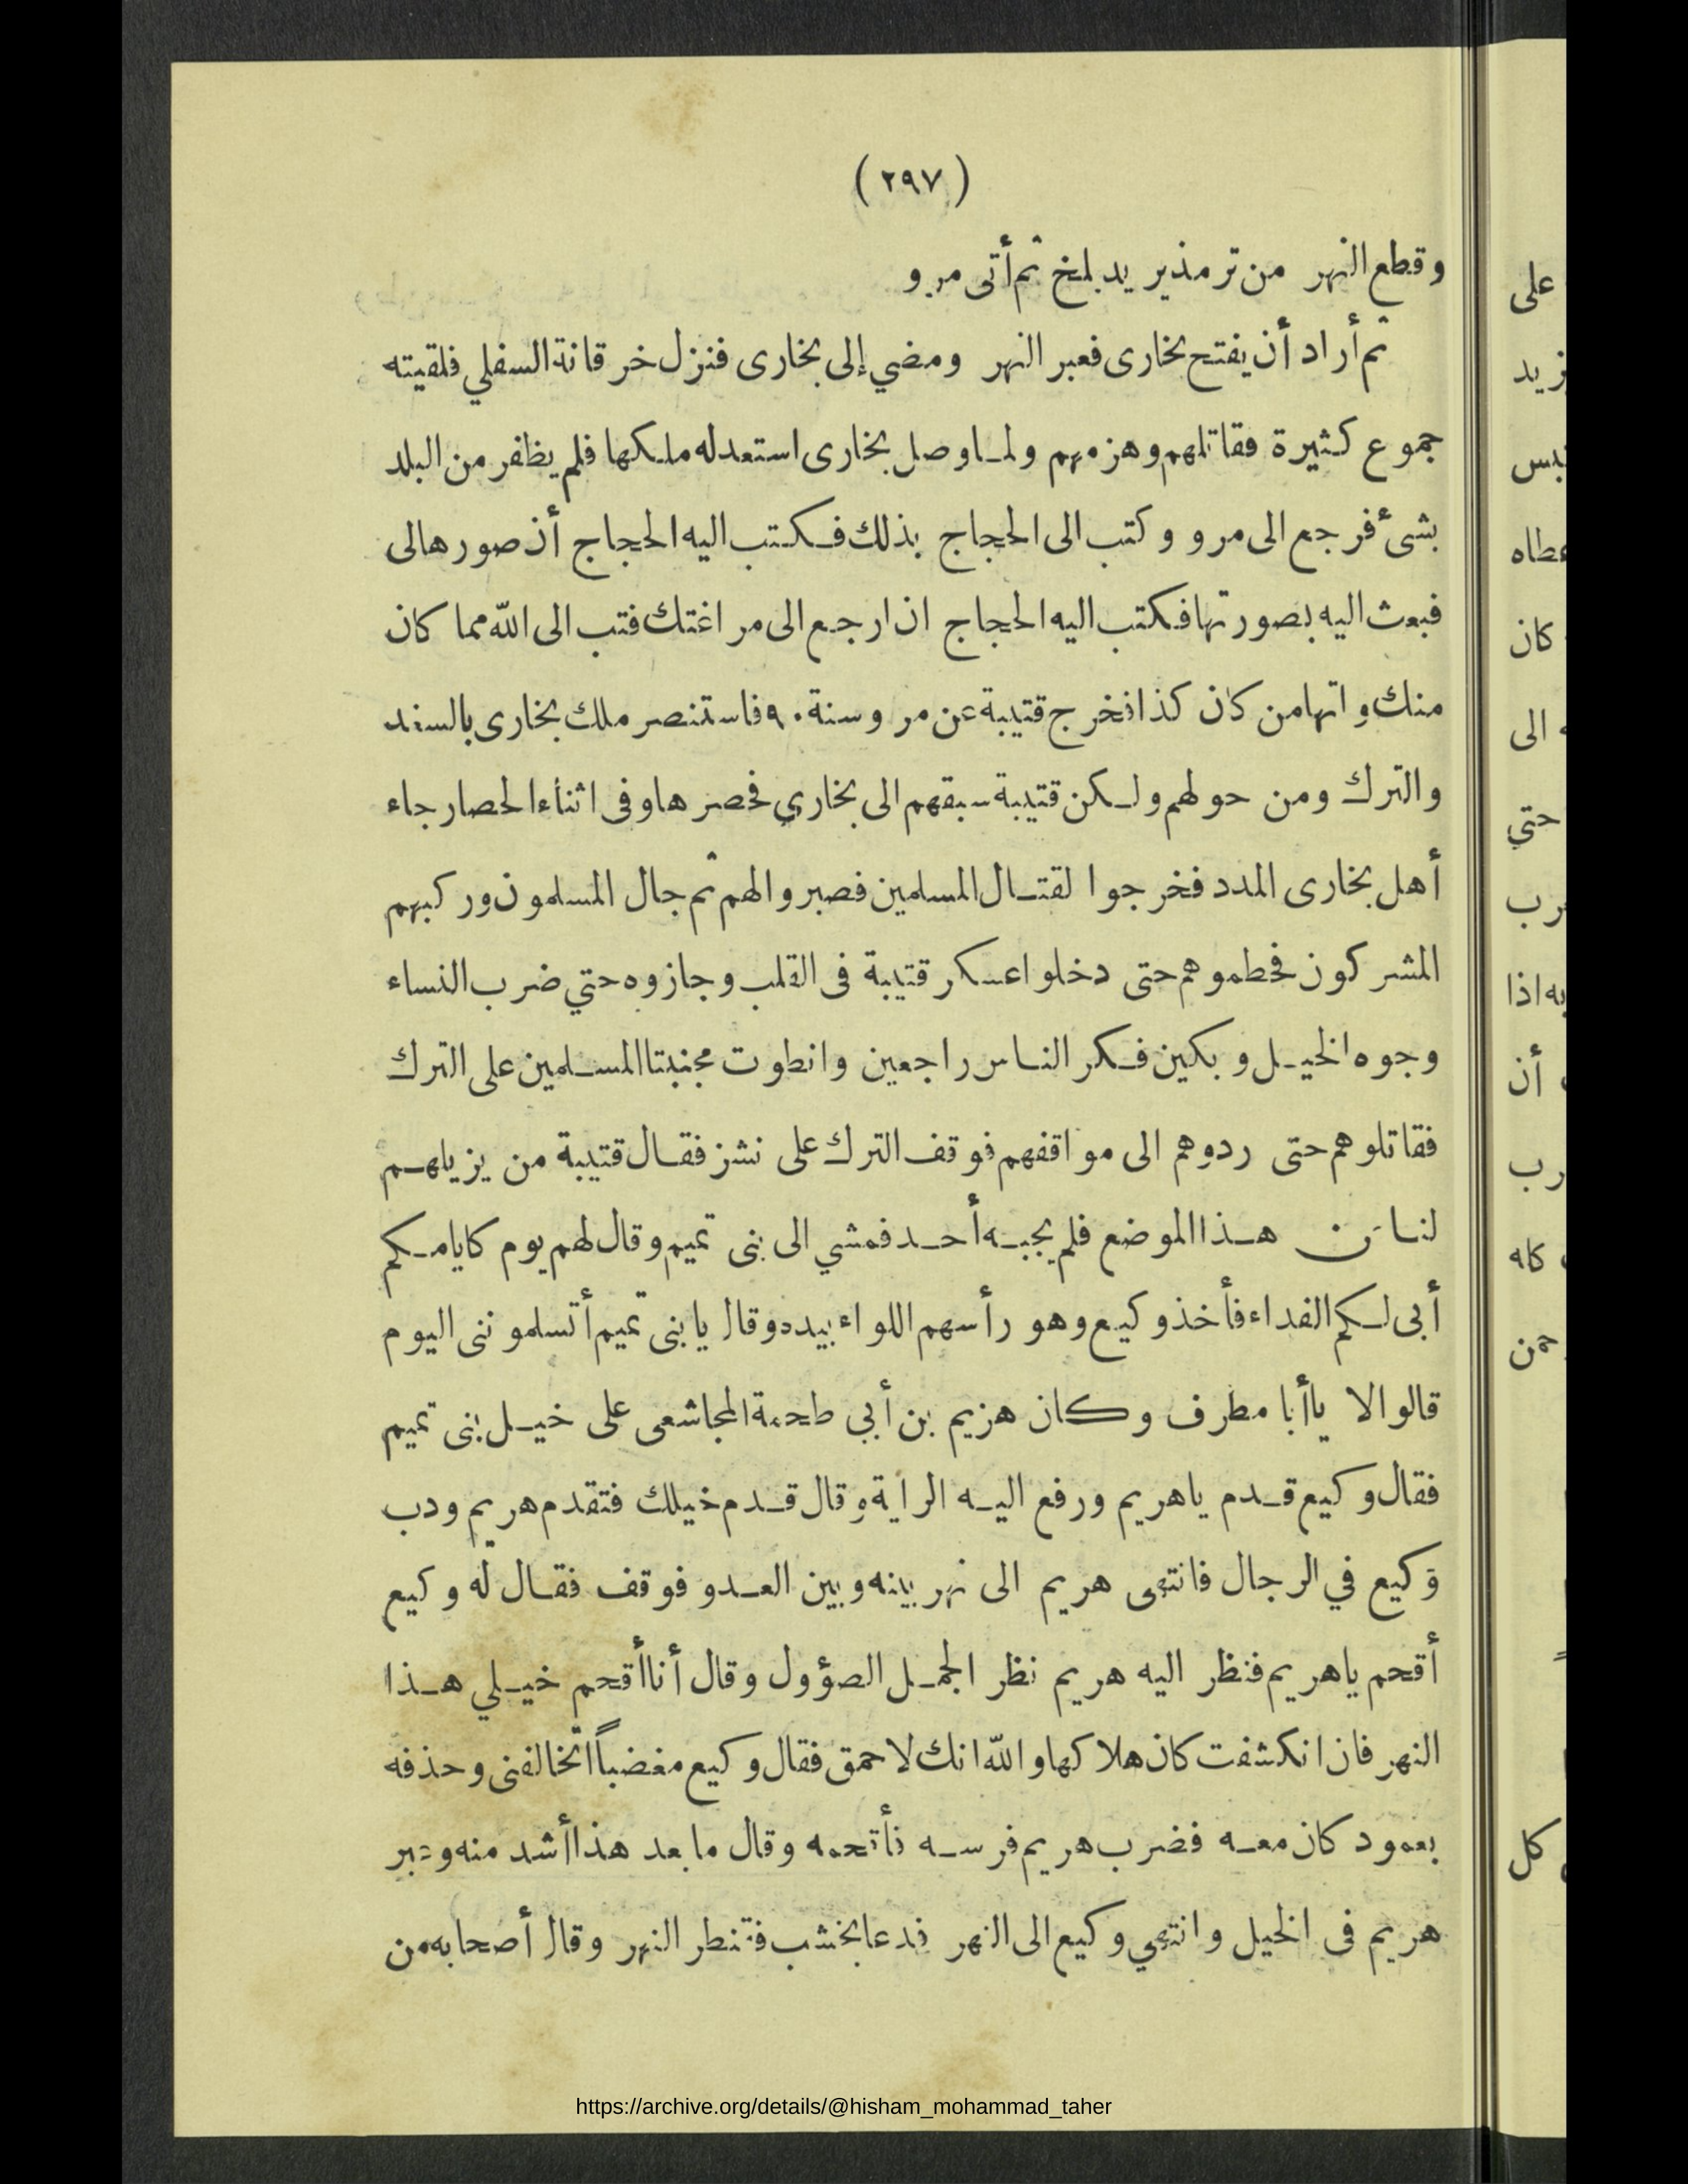 (٢٩٧)
وقطع النهر من ترمذ يريد بلخ ثم أتى مرو
ثم أراد أن يفتح بخارى فعبر النهر ومضي إلى بخارى فنزل خرقانة السفلي فلقيته
جموع كثيرة فقاتلهم وهزمهم ولما وصل بخارى استعد له ملكها فلم يظفر من البلد
بشئ فرجع الى مرو وكتب الى الحجاج بذلك فكتب اليه الحجاج أن صورها لى
فبعث اليه بصورتها فكتب اليه الحجاج ان ارجع الى مراغتك فتب الى الله مما كان
منك واتها من كان كذا فخرج قتيبة عن مرو سنة ٩٠ فاستنصر ملك بخارى بالسند
والترك ومن حولهم ولكن قتيبة سبقهم الى بخاري فحصرها وفى اثناء الحصار جاء
أهل بخارى المدد فخرجوا لقتال المسلمين فصبروا لهم ثم جال المسلمون وركبهم
المشركون فحطموهم حتى دخلوا عسكر قتيبة فى القلب وجازوه حتي ضرب النساء
وجوه الخيل وبكين فكر الناس راجعين وانطوت مجنبتا المسلمين على الترك
فقاتلوهم حتى ردوهم الى مواقفهم فوقف الترك على نشز فقال قتيبة من يزيلهم
لنا من هذا الموضع فلم يجبه أحد فمشي الى بنى تميم وقال لهم يوم كايامكم
أبى لكم الفداء فأخذ وكيع وهو رأسهم اللواء بيده وقال يابنى تميم أتسلموننى اليوم
قالوا لا ياأبا مطرف وكان هزيم بن أبي طحمة المجاشعى على خيل بنى تميم
فقال وكيع قدم ياهريم ورفع اليه الراية وقال قدم خيلك فتقدم هريم ودب
وكيع في الرجال فانتهى هريم الى نهر بينه وبين العدو فوقف فقال له وكيع
أقحم ياهريم فنظر اليه هريم نظر الجمل الصؤول وقال أنا أقحم خيلي هذا
النهر فان انكشفت كان هلاكها والله انك لاحمق فقال وكيع مغضباً اتخالفنى وحذفه
بعمود كان معه فضرب هريم فرسه فأقحمه وقال ما بعد هذا أشد منه وعبر
هريم فى الخيل وانتهي وكيع الى النهر فدعا بخشب فقنطر النهر وقال أصحابه من
على
كان
الى
حتي
أن
كل
https://archive.org/details/@hisham_mohammad_taher